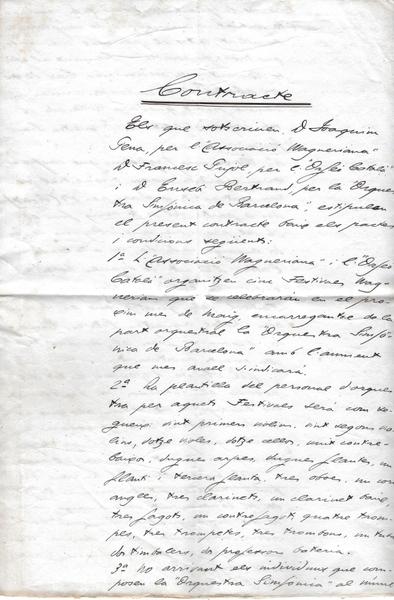 Contracte
Els que sotscriuen, D Joaquim
Pena, per l'"Associació Wagneriana"
D Francesc Pujol, per l'"Orfeó Català"
i D. Enseti Bertrand, per la "Orques-
tra Simfònica de Barcelona", estipulen
el present contracte baix els pactes
i condicions següents:
1ª L'"Associació Wagneriana" i l'"Orfeó
Català" organitzen cinc Festivals Wag-
nerians que se celebraran en el pro-
xim mes de Maig, encarregantse de la
part orquestral la "Orquestra Simfò-
nica de Barcelona" amb l'aument
que mes avall s'indicarà.
2ª La plantilla del personal d'orques-
tra per aquets Festivals será com se-
gueix: vint primers violins, vint segons vio-
lins, dotze violes, dotze cellos, vuit contra-
baixos, dugues arpes, dugues flautes, un
flautí i tercera flauta, tres oboes, un corn
anglès, tres clarinets, un clarinet baix,
tres fagots, un contrefagot, quatre trom-
pes, tres trompetes, tres trombons, un tuba
dos timbalers, professor bateria.
3ª No arrivant els individuus que com-
posen la "Orquestra Simfònica" al